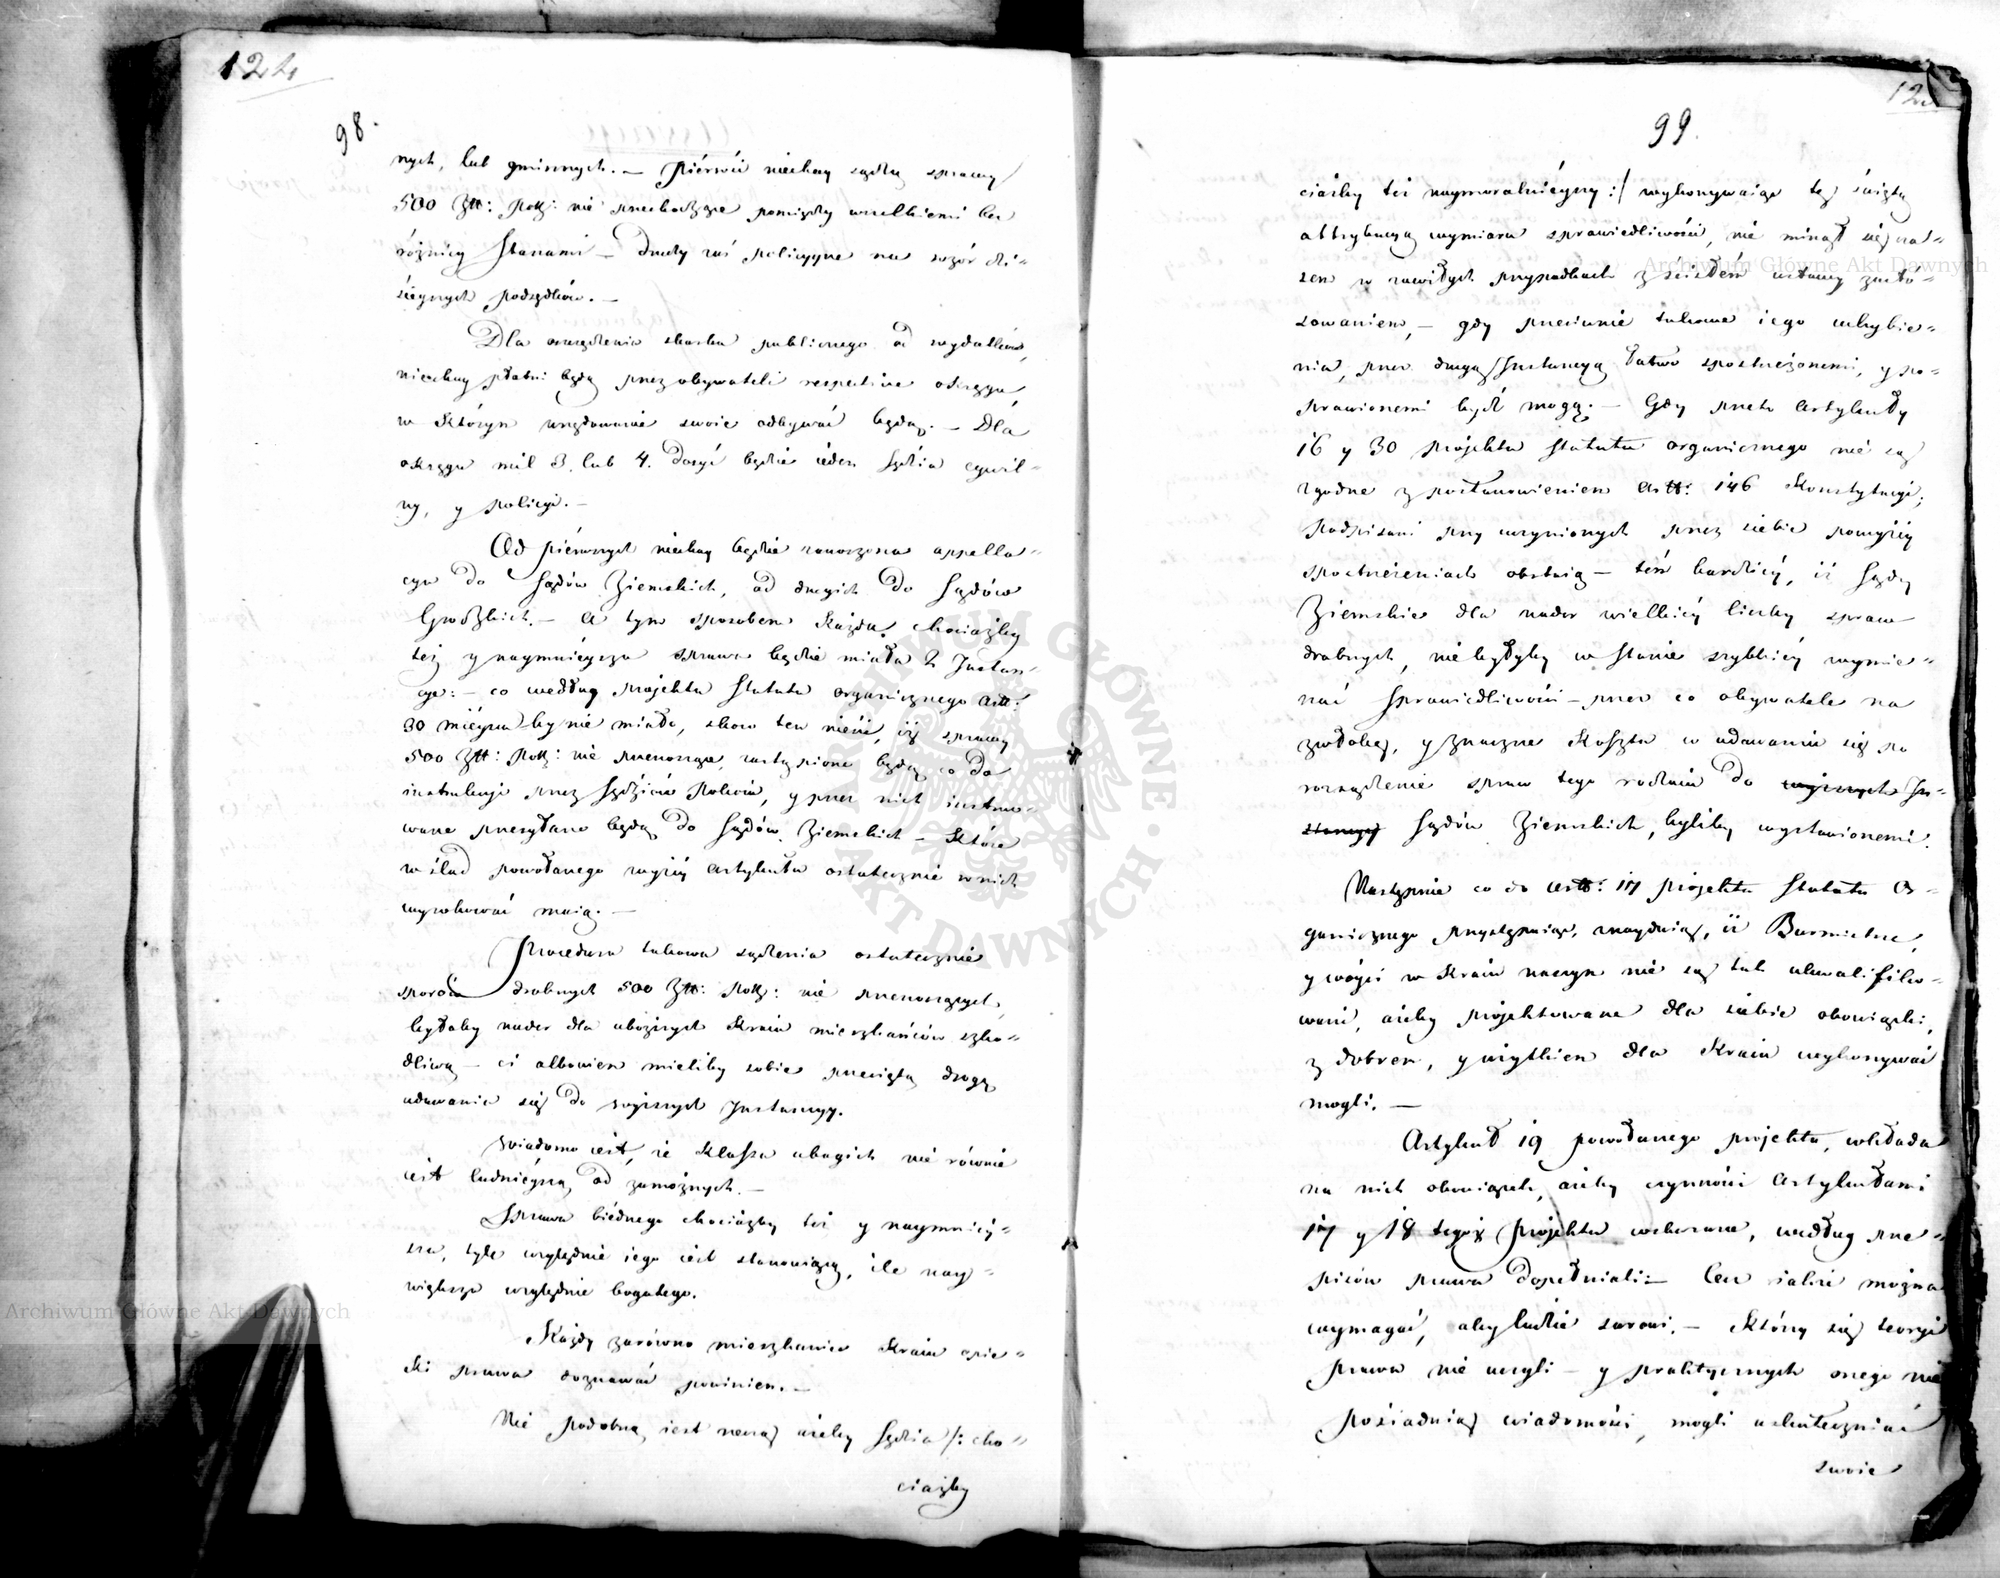 124
98.
nych, lub gminnych. — Piérwsi niechay sądzą sprawy
500 Złł: Polz: nié przechodzące pomiędzy wszelkiemi bez
różnicy Stanami — drudzy zaś policyyne na wzór dzi-
sieyszych podsędków. —
Dla oszczędzenia skarbu publicznego od wydatków,
niechay płatni będą przez obywateli respective okręgu,
w którym urzędowanie swoie odbywać będą. — Dla
okręgu mil 3. lub 4. dosyć będzie ieden Sędzia cywil-
ny, y policyi. —
Od piérwszych niechay będzie zanoszona appella-
cya do Sądów Ziemskich, od drugich do Sądów
Grodzkich. — a tym sposobem każda, chociażby
też y naymnieysza sprawa będzie miała 2 Instan-
cye: — co według projektu Statutu organicznego Artt:
30 mieysca by nie miało, skoro ten niesie, iż sprawy
500 Złł: Polz: nié przenoszące, zastąpione będą co do
instrukcyi przez Sędziów Pokoiu, y przez nich instruo-
wane przesyłane będą do Sądów Ziemskich — które
w ślad powołanego wyżéy Artykułu ostatecznie w nich
wyrokować maią. —
Procedura takowa sądzenia ostatecznie
sporów drobnych 500 Złł: Polz: nié przenoszących,
byłaby nader dla uboższych Kraiu mieszkańców szko-
dliwą — ci albowiem mieliby sobie przeciętą drogę
udawania się do wyższych Instancyy.
Wiadomo iest, że klassa ubogich nie równie
iest ludnieyszą od zamożnych. —
Sprawa biédnego chociażby też y naymniéy-
sza, tyle względnie iego iest stanowiącą, ile nay-
większa względnie bogatego.
Każdy zarówno mieszkaniec Kraiu opie-
ki prawa doznawać powinien. —
Nie podobną iest rzeczą ażeby Sędzia /: cho-
ciażby
99.
ciażby też naymoralnieyszy :/ wykonywaiąc tę świętą
attrybucyą wymiaru sprawiedliwości, nié minął się cza-
sem w zawiłych przypadkach z ścisłém ustawy zasto-
sowaniem, — gdy przeciwnie takowe iego uchybie-
nia, przez drugą Instancyą łatwo spostrzeżonemi, y po-
prawionemi bydź mogą. — Gdy przeto Artykuły
16 y 30 projektu Statutu organicznego nié są
zgodne z postanowieniem Artt: 146 Konstytucyi,
Podpisani przy uczynionych przez siebie powyżéy
spostrzeżeniach obstaią — tém bardziéy, iż Sądy
Ziemskie dla nader wielkiéy liczby spraw
drobnych, nie byłyby w stanie szybkiéy wymie-
rzać sprawiedliwości — przez co obywatele na
zwłokę, y znaczne koszta w udawaniu się po
rozsądzenie spraw tego rodzaiu do wyższych In-
stancyy Sądów Ziemskich, byliby wystawionemi.
Następnie co do Artt: 17 projektu Statutu Or-
ganicznego przystępuiąc, znayduią, iż Burmistrze,
y wóyci w Kraiu naszym nie są tak ukwalifiko-
wani, ażeby projektowane dla siebie obowiązki,
z dobrem, y użytkiem dla Kraiu wykonywać
mogli. —
Artykuł 19 powołanego projektu, wkłada
na nich obowiązek, ażeby czynności Artykułami
17 y 18 tegoż Projektu wskazane, według prze-
pisów prawa dopełniali: — lecz iakże można
wymagać, aby ludzie surowi, — którzy się teoryi
prawa nie uczyli — y praktycznych onego nie
posiadaią wiadomości, mogli uskuteczniać
swoie
Archiwum Główne Akt Dawnych
Archiwum Główne Akt Dawnych
ARCHIWUM GŁÓWNE · AKT DAWNYCH ·